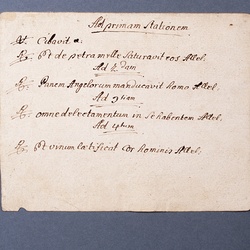 Ad primam Stationem
V. Cibavit
R. Et de petra melle saturavit eos Allel.
Ad 2dam
R. Panem Angelorum manducavit homo Allel.
Ad 3tiam
R. omne delectamentum in se habentem Allel.
Ad 4tam
R. Et vinum laetificat cor hominis Allel.